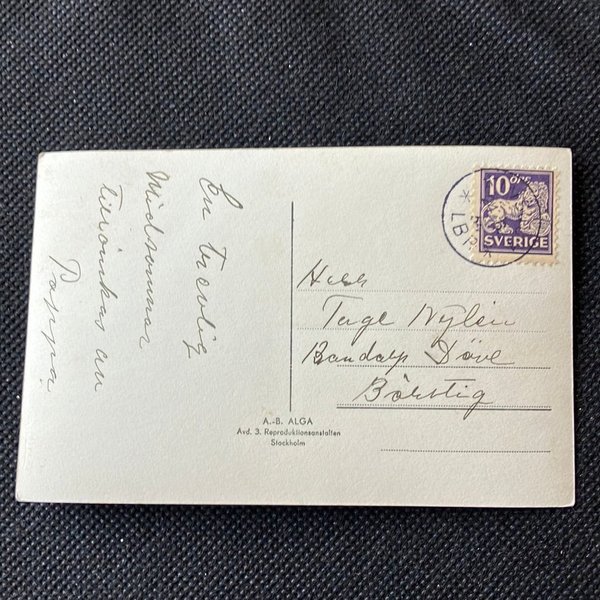 En trevlig
Midsommar
tillönskas av
Pappa
10 ÖRE
SVERIGE
LBP
Herr
Tage Nylén
Börstig
A.-B. ALGA
Avd. 3. Reproduktionsanstalten
Stockholm